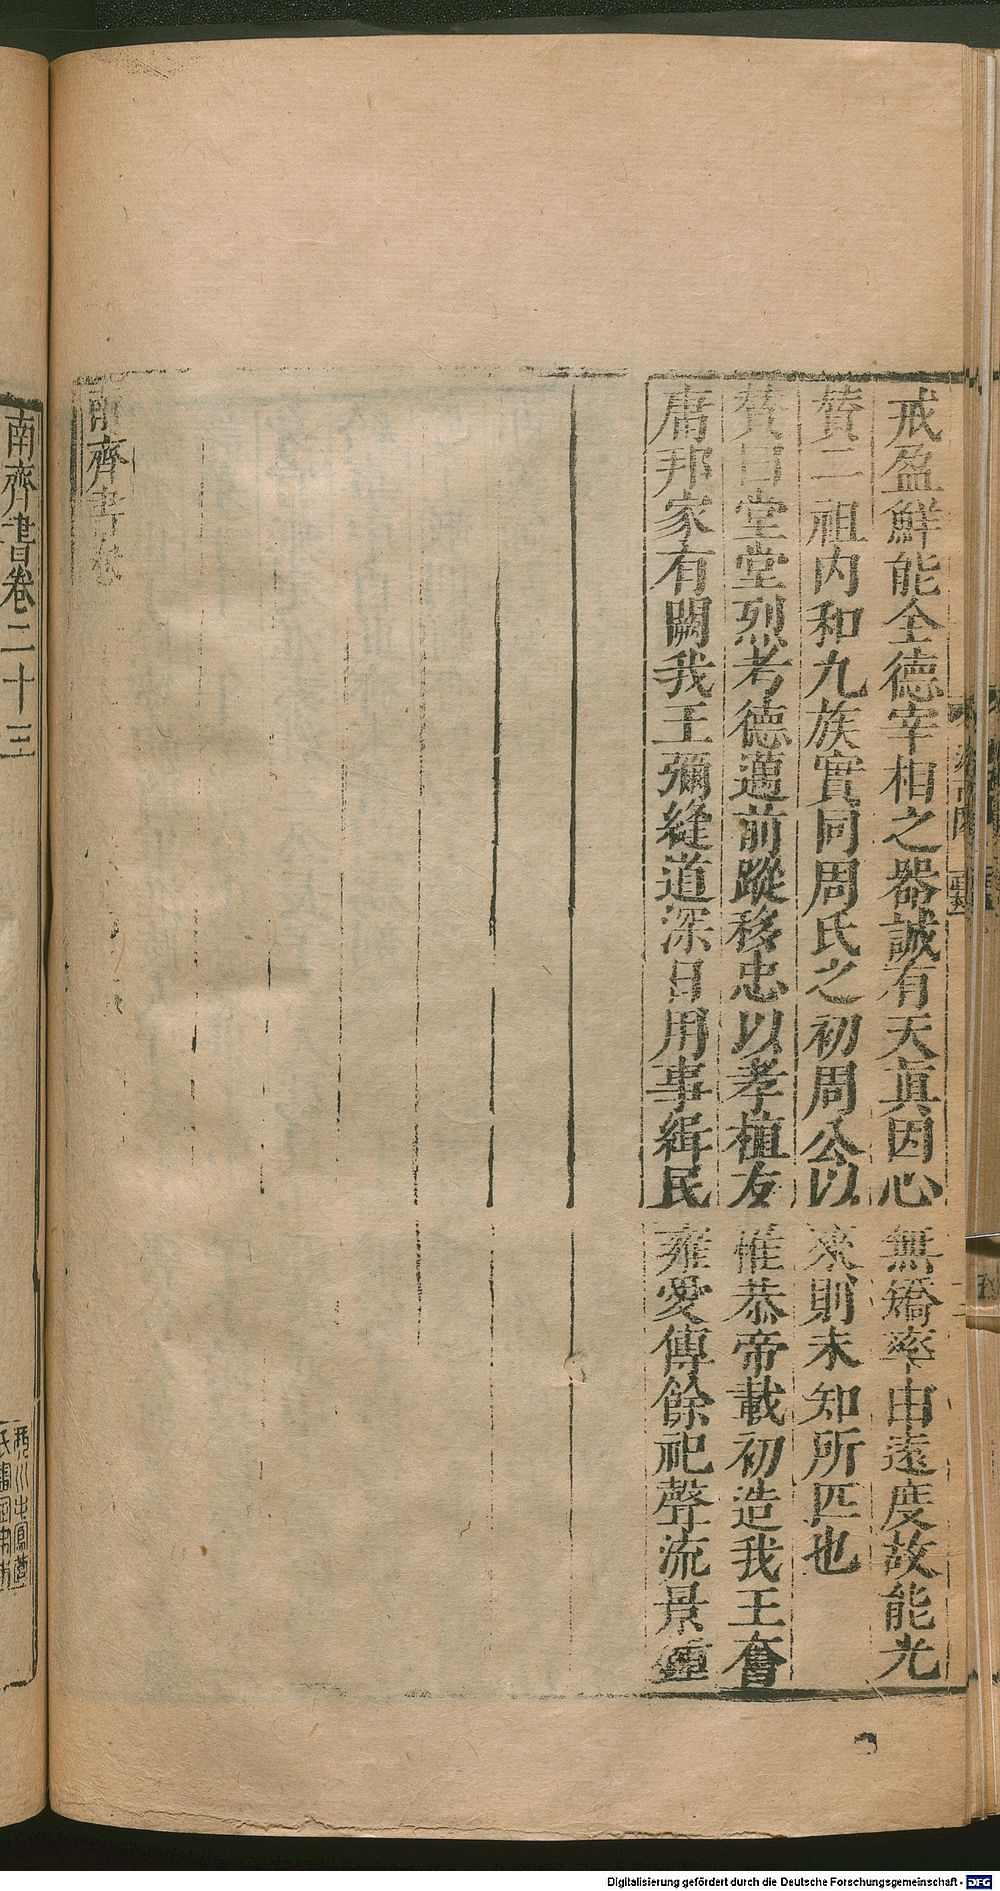 戒盈鮮能全德宰相之器誠有天眞因心無矯率由遠度故能光
贊二祖内和九族實同周氏之初周公以來則未知所匹也
贊曰堂堂烈考德邁前蹤移忠以孝植友惟恭帝載初造我王奮
庸邦家有闕我王彌縫道深日用事緝民雍愛傳餘祀聲流景鍾
南齊書卷
南齊書卷二十三
Digitalisierung gefördert durch die Deutsche Forschungsgemeinschaft - DFG